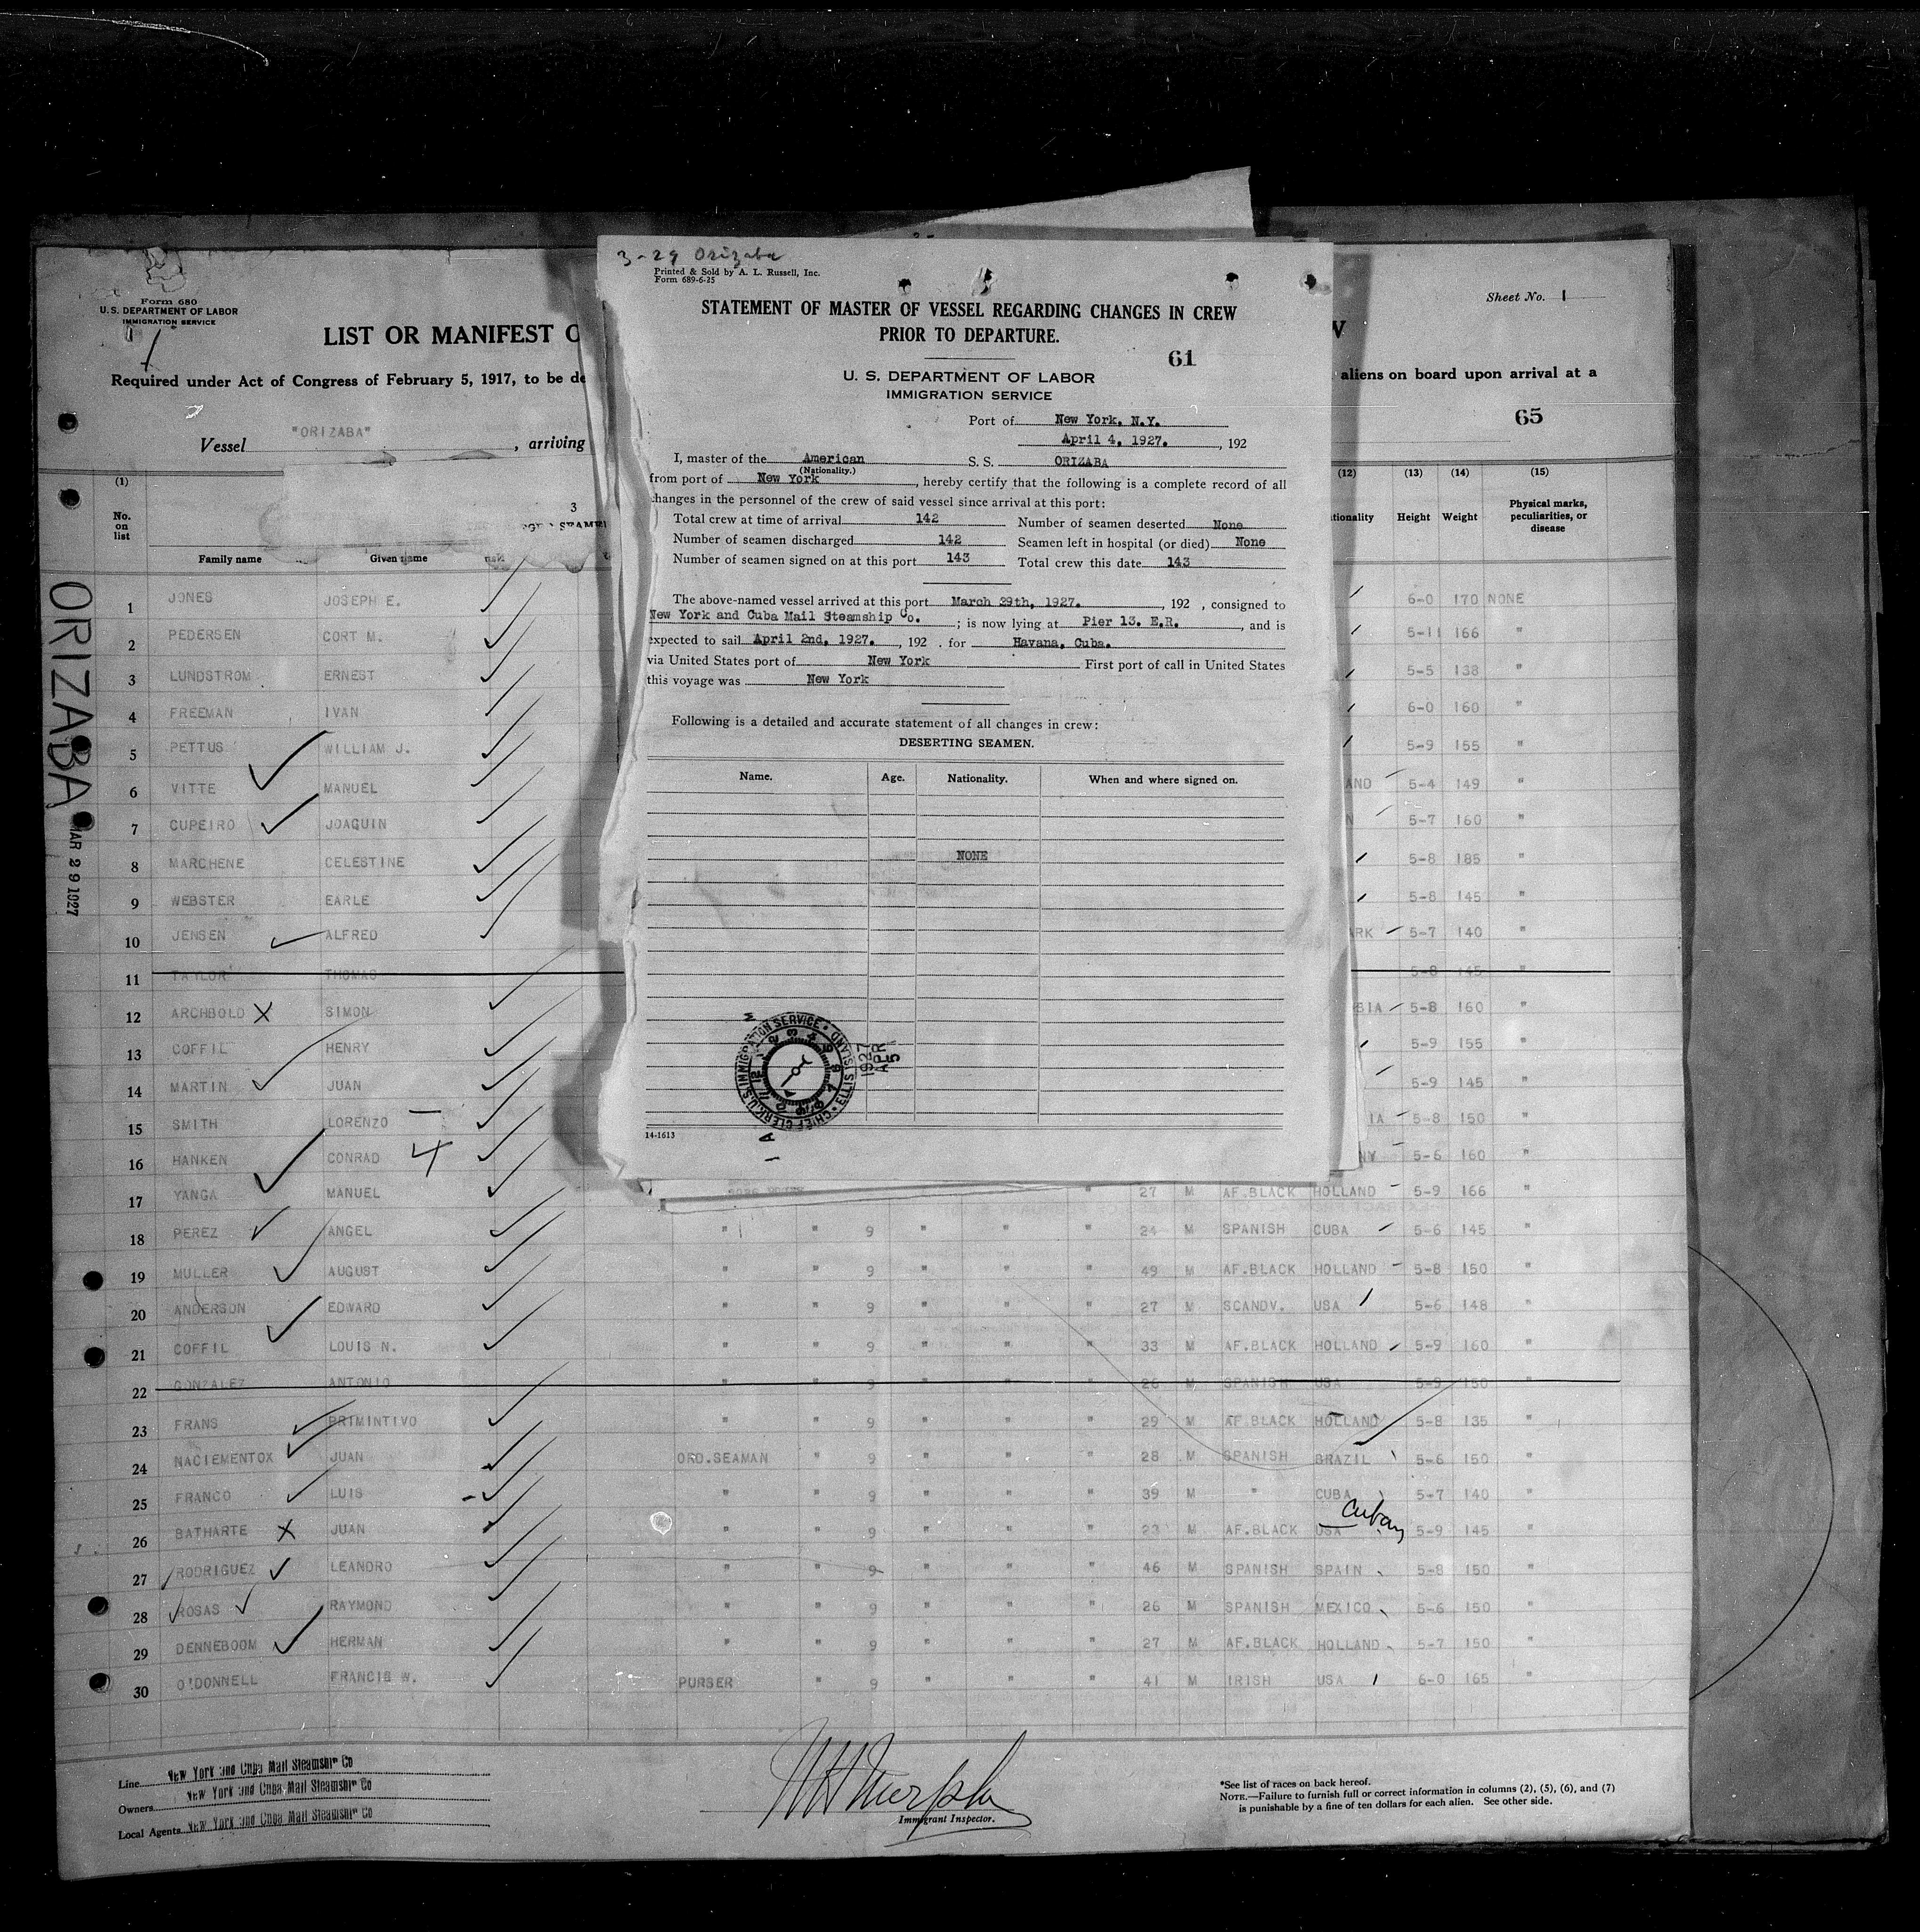 3-29 Orizaba
Printed & Sold by A. L. Russell, Inc.
Form 689-6-25
STATEMENT OF MASTER OF VESSEL REGARDING CHANGES IN CREW
PRIOR TO DEPARTURE.
61
U. S. DEPARTMENT OF LABOR
IMMIGRATION SERVICE
Port of New York, N.Y.
April 4, 1927. , 192
I, master of the American S. S. ORIZABA
(Nationality.)
from port of New York , hereby certify that the following is a complete record of all
changes in the personnel of the crew of said vessel since arrival at this port:
Total crew at time of arrival 142 Number of seamen deserted None
Number of seamen discharged 142 Seamen left in hospital (or died) None
Number of seamen signed on at this port 143 Total crew this date 143
The above-named vessel arrived at this port March 29th, 1927. , 192 , consigned to
New York and Cuba Mail Steamship Co. ; is now lying at Pier 13. E.R. , and is
expected to sail April 2nd, 1927. , 192 . for Havana, Cuba.
via United States port of New York First port of call in United States
this voyage was New York
Following is a detailed and accurate statement of all changes in crew:
DESERTING SEAMEN.
Name. Age. Nationality. When and where signed on.
NONE
CHIEF CLERK U.S. IMMIGRATION SERVICE • ELLIS ISLAND
1927
APR
5
14-1613
Form 680
U. S. DEPARTMENT OF LABOR
IMMIGRATION SERVICE
Sheet No. 1
LIST OR MANIFEST O
W
Required under Act of Congress of February 5, 1917, to be de
aliens on board upon arrival at a
65
Vessel "ORIZABA" , arriving
3
(1) (12) (13) (14) (15)
No. on list Family name Given name Height Weight Physical marks, peculiarities, or disease
ORIZABA
MAR 29 1927
1 JONES JOSEPH E. 6-0 170 NONE
2 PEDERSEN CORT M. 5-11 166 "
3 LUNDSTROM ERNEST 5-5 138 "
4 FREEMAN IVAN 6-0 160 "
5 PETTUS WILLIAM J. 5-9 155 "
6 VITTE MANUEL AND 5-4 149 "
7 CUPEIRO JOAQUIN N 5-7 160 "
8 MARCHENE CELESTINE 5-8 185 "
9 WEBSTER EARLE 5-8 145 "
10 JENSEN ALFRED RK 5-7 140 "
11 TAYLOR THOMAS 5-8 145 "
12 ARCHBOLD X SIMON BIA 5-8 160 "
13 COFFIL HENRY 5-9 155 "
14 MARTIN JUAN 5-9 145 "
15 SMITH LORENZO IA 5-8 150 "
16 HANKEN CONRAD 4 NY 5-6 160 "
17 YANGA MANUEL " 27 M AF.BLACK HOLLAND 5-9 166 "
18 PEREZ ANGEL " " 9 " " " 24 M SPANISH CUBA 5-6 145 "
19 MULLER AUGUST " " 9 " " " 49 M AF.BLACK HOLLAND 5-8 150 "
20 ANDERSON EDWARD " " 9 " " " 27 M SCANDV. USA 5-6 148 "
21 COFFIL LOUIS N. " " 9 " " " 33 M AF.BLACK HOLLAND 5-9 160 "
22 GONZALEZ ANTONIO " " 9 " " " 26 M SPANISH USA 5-9 150 "
23 FRANS PRIMINTIVO " " 9 " " " 29 M AF.BLACK HOLLAND 5-8 135 "
24 NACIEMENTOX JUAN ORD.SEAMAN " 9 " " " 28 M SPANISH BRAZIL 5-6 150 "
25 FRANCO LUIS " " 9 " " " 39 M " CUBA 5-7 140 "
26 BATHARTE X JUAN " " 9 " " " 23 M AF.BLACK USA Cuban 5-9 145 "
27 RODRIGUEZ LEANDRO " " 9 " " " 46 M SPANISH SPAIN 5-8 150 "
28 ROSAS RAYMOND " " 9 " " " 26 M SPANISH MEXICO 5-6 150 "
29 DENNEBOOM HERMAN " " 9 " " " 27 M AF.BLACK HOLLAND 5-7 150 "
30 O'DONNELL FRANCIS W. PURSER " 9 " " " 41 M IRISH USA 6-0 165 "
Line New York and Cuba Mail Steamship Co
Owners New York and Cuba Mail Steamship Co
Local Agents New York and Cuba Mail Steamship Co
Immigrant Inspector.
*See list of races on back hereof.
NOTE.—Failure to furnish full or correct information in columns (2), (5), (6), and (7)
is punishable by a fine of ten dollars for each alien. See other side.